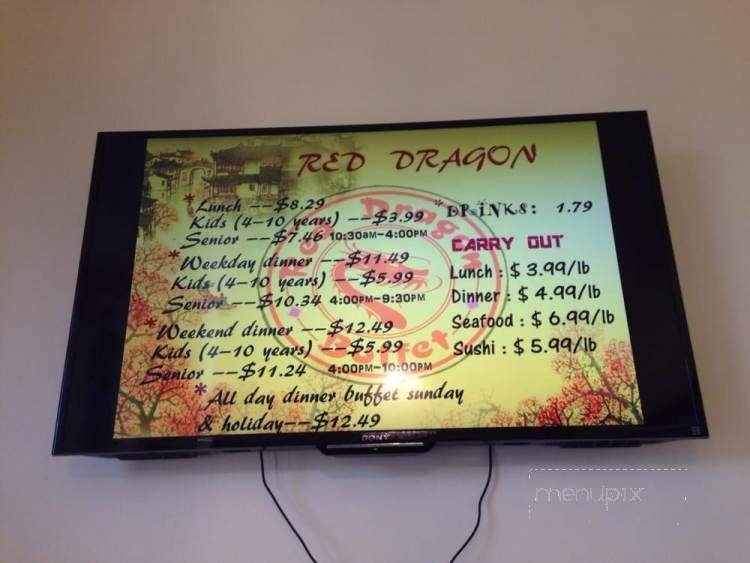 RED DRAGON
* Lunch --$8.29
Kids (4-10 years) --$3.99
Senior --$7.46 10:30am-4:00PM
* Weekday dinner --$11.49
Kids (4-10 years) --$5.99
Senior --$10.34 4:00PM-9:30PM
* Weekend dinner --$12.49
Kids (4-10 years) --$5.99
Senior --$11.24 4:00PM-10:00PM
* All day dinner buffet sunday
& holiday--$12.49
* DRINKS: 1.79
CARRY OUT
Lunch : $ 3.99/lb
Dinner : $ 4.99/lb
Seafood : $ 6.99/lb
Sushi : $ 5.99/lb
Red Dragon
Buffet
SONY
menupix